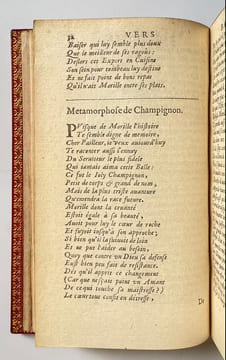 32 VERS
Baiser qui luy semble plus doux
Que le meilleur de ses ragous:
Deslors cet Expert en Cuisine
Son sein pour tombeau luy destine
Et ne fait point de bons repas
Qu'il n'ait Marille entre ses plats.
Metamorphose de Champignon.
PVisque de Morille l'histoire
Te semble digne de memoire,
Cher Pailleur, je veux aujourd'huy
Te raconter aussi l'ennuy
Du Seruiteur le plus fidele
Qui jamais aima cette Belle:
Ce fut le Joly Champignon,
Petit de corps & grand de nom,
Mais de la plus triste auanture
Qu'entendra la race future.
Morille dont la cruauté
Estoit égale à sa beauté,
Auoit pour luy le cœur de roche
Et fuyoit jusqu'à son approche;
Si bien qu'il la suiuoit de loin
Et ne put l'aider au besoin,
Quoy que contre vn Dieu sa defense
Eust bien peu fait de resistance.
Dés qu'il apprit ce changement
(Car que n'sçait point vn Amant
De ce qui touche sa maistresse?)
Le cœur tout confit en détresse,
De